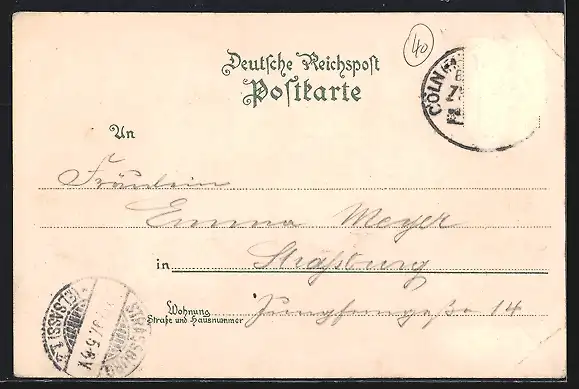 40
Deutsche Reichspost
Postkarte
CÖLN
An
Fräulein
Emma Meyer
in Straßburg
Wohnung
Straße und Hausnummer
Jungferngasse 14
STRASSBURG
(ELSASS)